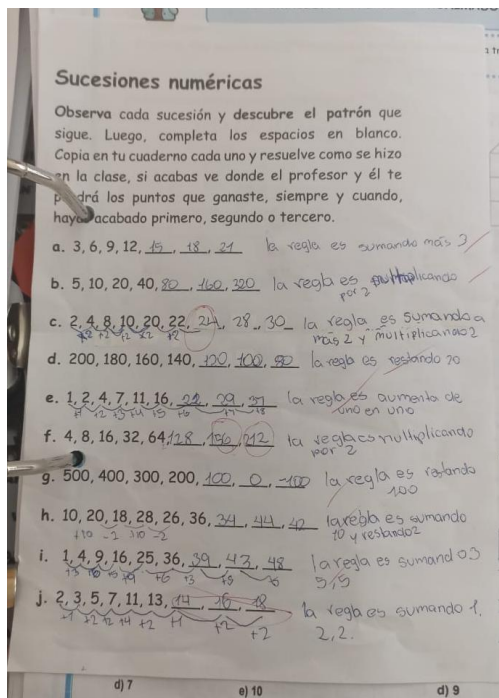 Sucesiones numéricas
Observa cada sucesión y descubre el patrón que
sigue. Luego, completa los espacios en blanco.
Copia en tu cuaderno cada uno y resuelve como se hizo
en la clase, si acabas ve donde el profesor y él te
pondrá los puntos que ganaste, siempre y cuando,
hayas acabado primero, segundo o tercero.
a. 3, 6, 9, 12, 15, 18, 21 la regla es sumando más 3
b. 5, 10, 20, 40, 80, 160, 320 la regla es multiplicando
por 2
c. 2, 4, 8, 10, 20, 22, 24, 28, 30 la regla es sumando a
+2 +2 +2
mas 2 y multiplicando 2
d. 200, 180, 160, 140, 120, 100, 80 la regla es restando 20
e. 1, 2, 4, 7, 11, 16, 22, 29, 37 la regla es aumenta de
+1 +2 +3 +4 +5 +6 +7 +8
uno en uno
f. 4, 8, 16, 32, 64, 128, 196, 212 la regla es multiplicando
por 2
g. 500, 400, 300, 200, 100, 0, -100 la regla es restando
100
h. 10, 20, 18, 28, 26, 36, 34, 44, 42 la regla es sumando
+10 -2 +10 -2
10 y restando 2
i. 1, 4, 9, 16, 25, 36, 39, 43, 48 la regla es sumando 3
+3 +6 +3
5, 5
j. 2, 3, 5, 7, 11, 13, 14, 16, 18
+1 +2 +2 +4 +2 +1 +2 +2
la regla es sumando 1,
2, 2.
d) 7
e) 10
d) 9